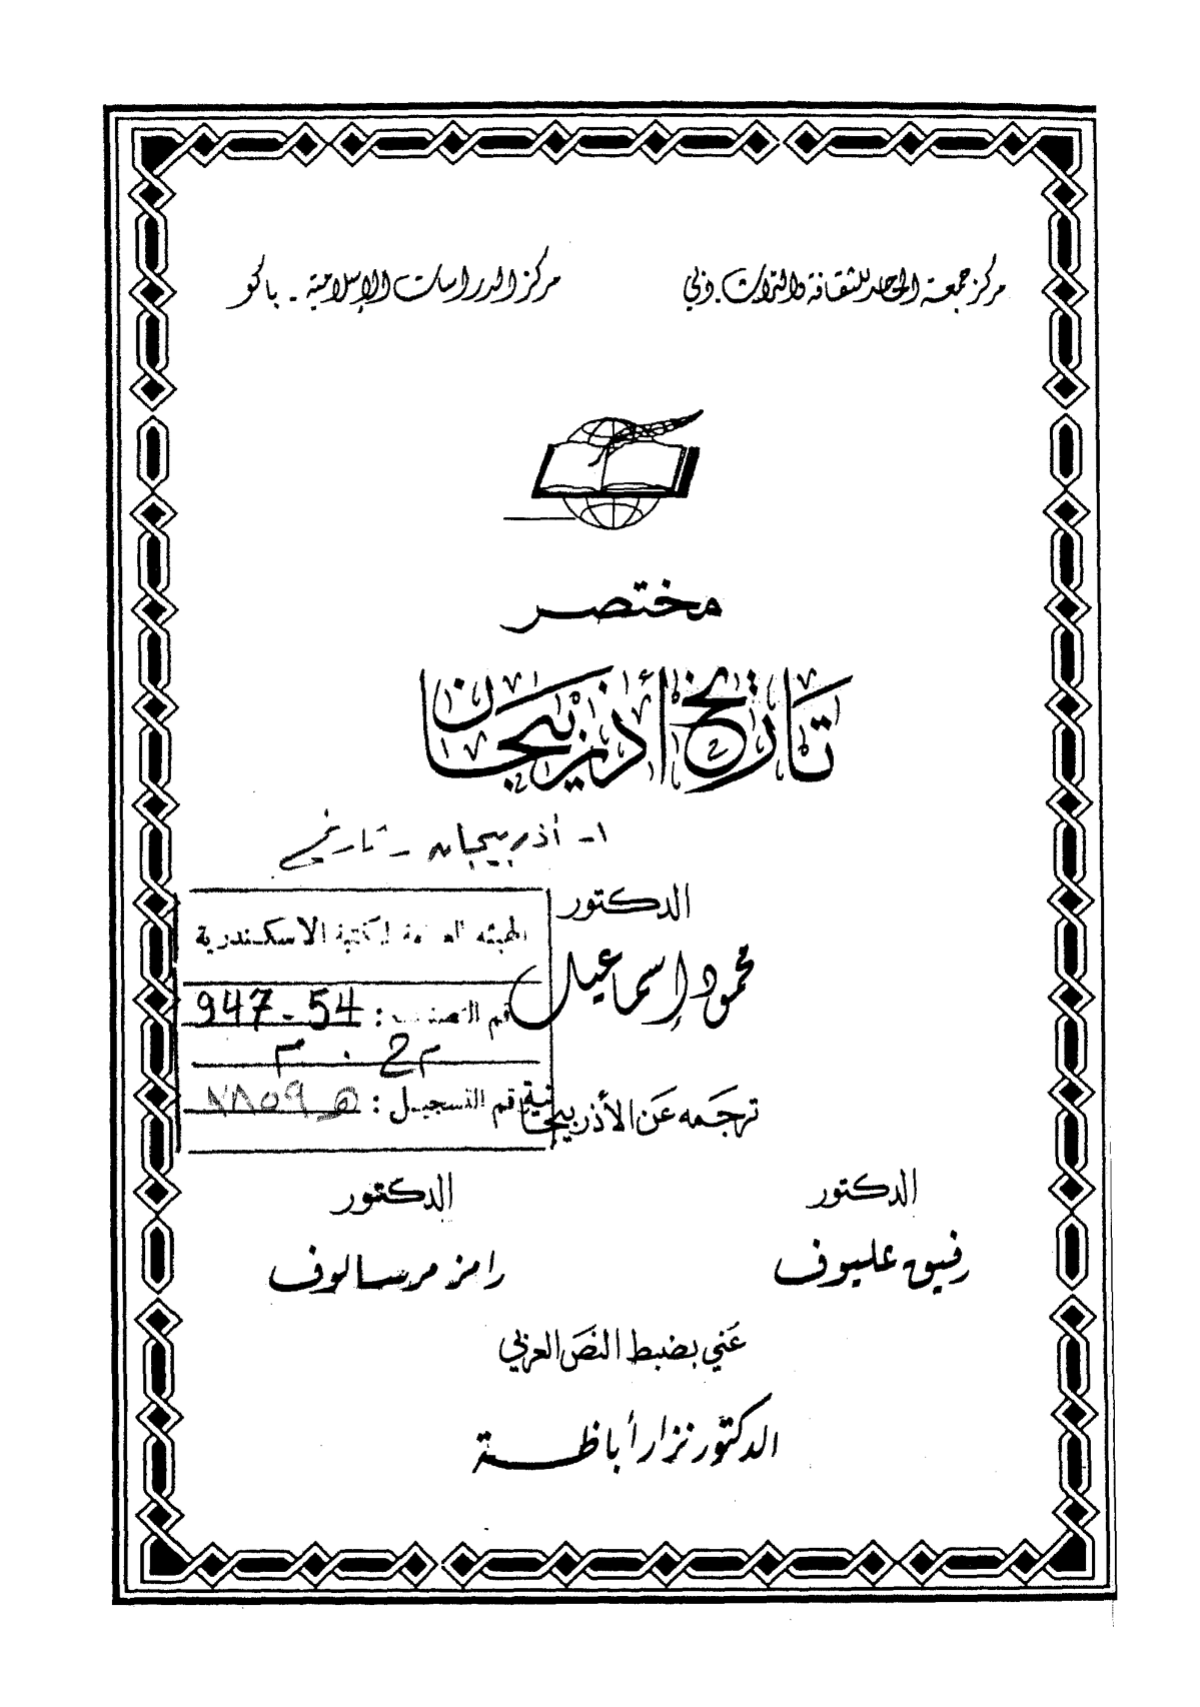 مركز جمعة الماجد للثقافة والتراث - دبي
مركز الدراسات الإسلامية - باكو
مختصر
تاريخ أذربيجان
١- أذربيجان - تاريخ
الدكتور
محمود إسماعيل
الهيئة العامة لمكتبة الاسكندرية
رقم التصنيف : 947-54
رقم التسجيل :
ترجمه عن الأذربيجانية
الدكتور
رفيق علييوف
الدكتور
رامز مرسالوف
عني بضبط النص العربي
الدكتور نزار أباظة